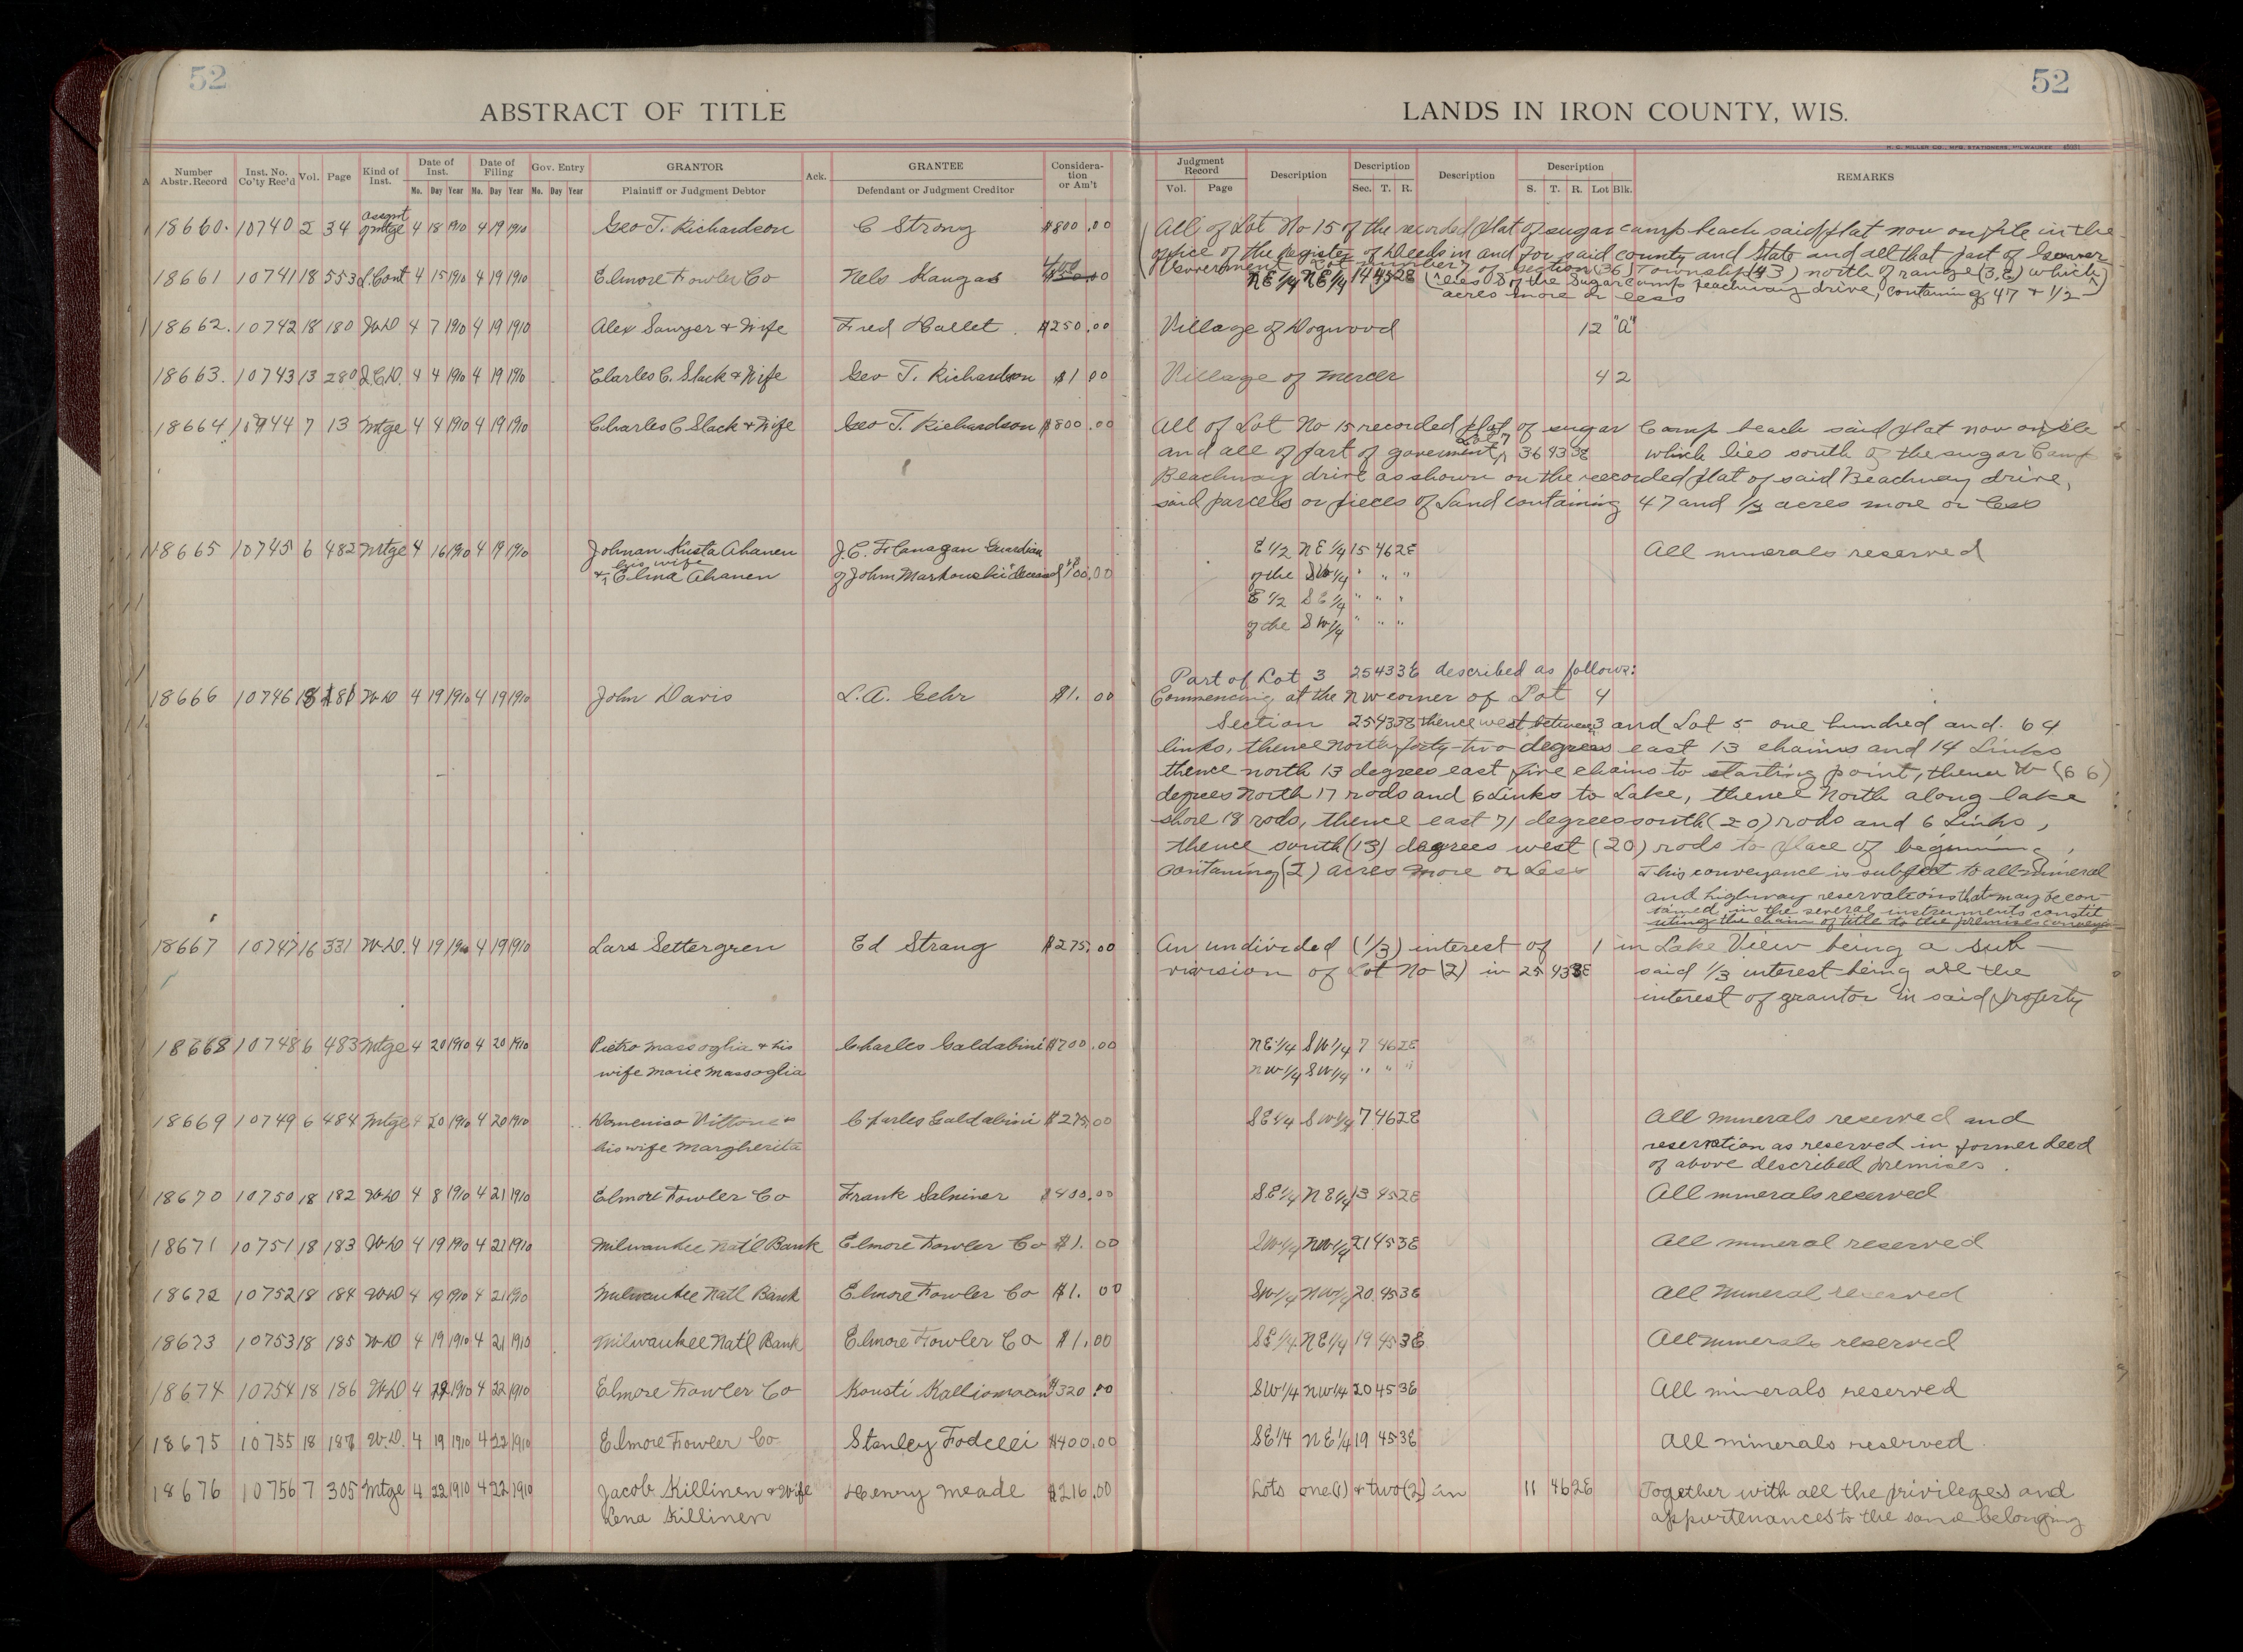 52
52
ABSTRACT OF TITLE
LANDS IN IRON COUNTY, WIS.
H. C. MILLER CO., MFG. STATIONERS, MILWAUKEE
Number Abstr. Record Inst. No. Co'ty Rec'd Vol. Page Kind of Inst. Date of Inst. Date of Filing Gov. Entry GRANTOR Ack. GRANTEE Considera-tion or Am't Judgment Record Description Description Description Description REMARKS
Mo. Day Year Mo. Day Year Mo. Day Year Plaintiff or Judgment Debtor Defendant or Judgment Creditor Vol. Page Sec. T. R. S. T. R. Lot Blk.
18660. 10740 2 34 assgnt of mtge 4 18 1910 4 19 1910 Geo T. Richardson C Strong $800.00 All of Lot No 15 of the recorded plat of sugar camp beach said plat now on file in the
office of the Register of Deeds in and for said county and State and all that part of Gover
Government Lot number 7 of section (36) Township (43) north of range (3, E) which
18661 10741 18 553 L. Cont 4 15 1910 4 19 1910 Elmore Fowler Co Nels Kangas NE 1/4 NE 1/4 14 45 2E lies S of the Sugar camp beachway drive, containing 47 & 1/2
acres more or less
18662. 10742 18 180 W.D 4 7 1910 4 19 1910 Alex Sawyer & Wife Fred Hallet $250.00 Village of Dogwood 12 "A"
18663. 10743 13 280 Q.C.D. 4 4 1910 4 19 1910 Charles C. Slack & Wife Geo T. Richardson $1.00 Village of Mercer 4 2
18664 10744 7 13 Mtge 4 4 1910 4 19 1910 Charles C Slack & Wife Geo T. Richardson $800.00 All of Lot No 15 recorded plat of sugar Camp beach said plat now on file
and all of part of goverment Lot 7 36 43 3E which lies south of the sugar Camp
Beachway drive as shown on the recorded plat of said Beachway drive,
said parcels or pieces of Land containing 47 and 1/2 acres more or less
18665 10745 6 482 Mtge 4 16 1910 4 19 1910 Johnan Kusta Ahanen J.C. Flanagan Guardian E 1/2 NE 1/4 15 46 2E All minerals reserved
his wife
& Elma Ahanen of John Markouski deceased $100.00 of the SW 1/4 " " "
E 1/2 SE 1/4 " " "
of the SW 1/4 " " "
Part of Lot 3 25 43 3E described as follows:
18666 10746 18 181 W.D 4 19 1910 4 19 1910 John Davis L.A. Gehr $1.00 Commencing at the NW corner of Lot 4
Section 25 43 3E thence west between 3 and Lot 5 one hundred and 64
links, thence North forty-two degrees east 13 chains and 14 Links
thence north 13 degrees east five chains to starting point, thence W (66)
degrees North 17 rods and 6 Links to Lake, thence North along lake
shore 18 rods, thence east 71 degrees south (20) rods and 6 Links,
thence south (13) degrees west (20) rods to place of beginning,
Containing (2) acres More or Less This conveyance is subject to all mineral
and highway reservations that may be con-
tained in the several instruments constit
uting the chain of title to the premises conveyed
18667 10747 16 331 W.D. 4 19 1910 4 19 1910 Lars Settergren Ed Strang $275.00 An undivided (1/3) interest of 1 in Lake View being a sub-
division of Lot No (2) in 25 43 3E said 1/3 interest being all the
interest of grantor in said property
18668 10748 6 483 Mtge 4 20 1910 4 20 1910 Pietro Massoglia & his Charles Galdabini $700.00 NE 1/4 SW 1/4 7 46 2E
wife Marie Massoglia NW 1/4 SW 1/4 " " "
18669 10749 6 484 Mtge 4 20 1910 4 20 1910 Domeniso Vittone & Charles Galdabini $275.00 SE 1/4 SW 1/4 7 46 2E All minerals reserved and
his wife Margherita reservation as reserved in former deed
of above described premises.
18670 10750 18 182 W.D 4 8 1910 4 21 1910 Elmore Fowler Co Frank Salminer $400.00 SE 1/4 NE 1/4 13 45 2E All minerals reserved
18671 10751 18 183 W.D 4 19 1910 4 21 1910 Milwaukee Nat'l Bank Elmore Fowler Co $1.00 SW 1/4 NW 1/4 21 45 3E All mineral reserved
18672 10752 18 184 W.D 4 19 1910 4 21 1910 Milwaukee Nat'l Bank Elmore Fowler Co $1.00 SW 1/4 NW 1/4 20 45 3E All Mineral reserved
18673 10753 18 185 W.D 4 19 1910 4 21 1910 Milwaukee Nat'l Bank Elmore Fowler Co $1.00 SE 1/4 NE 1/4 19 45 3E All minerals reserved
18674 10754 18 186 W.D 4 1910 4 22 1910 Elmore Fowler Co Kousti $320.00 SW 1/4 NW 1/4 20 45 3E All minerals reserved
18675 10755 18 187 W.D. 4 19 1910 4 22 1910 Elmore Fowler Co. Stanley Fodelei $400.00 SE 1/4 NE 1/4 19 45 3E All minerals reserved
18676 10756 7 305 Mtge 4 22 1910 4 22 1910 Jacob Killinen & Wife Henry Meade $216.00 Lots one (1) & two (2) in 11 46 2E Together with all the privileges and
Lena Killinen appurtenances to the same belonging